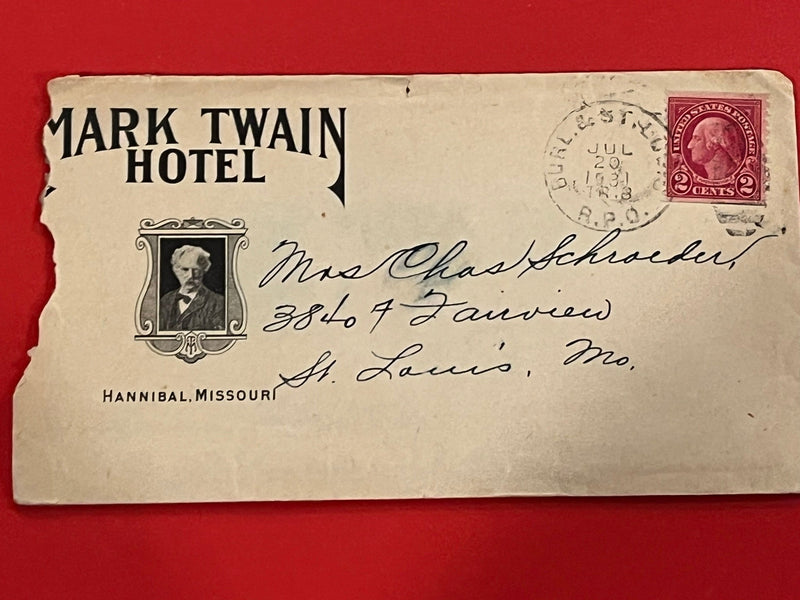 MARK TWAIN
HOTEL
HANNIBAL, MISSOURI
BURL. & ST. LOUIS
JUL
20
1931
TR.8
R.P.O.
UNITED STATES POSTAGE
2 CENTS 2
Mrs Chas Schroeder,
3840 A Fairview
St. Louis, Mo.